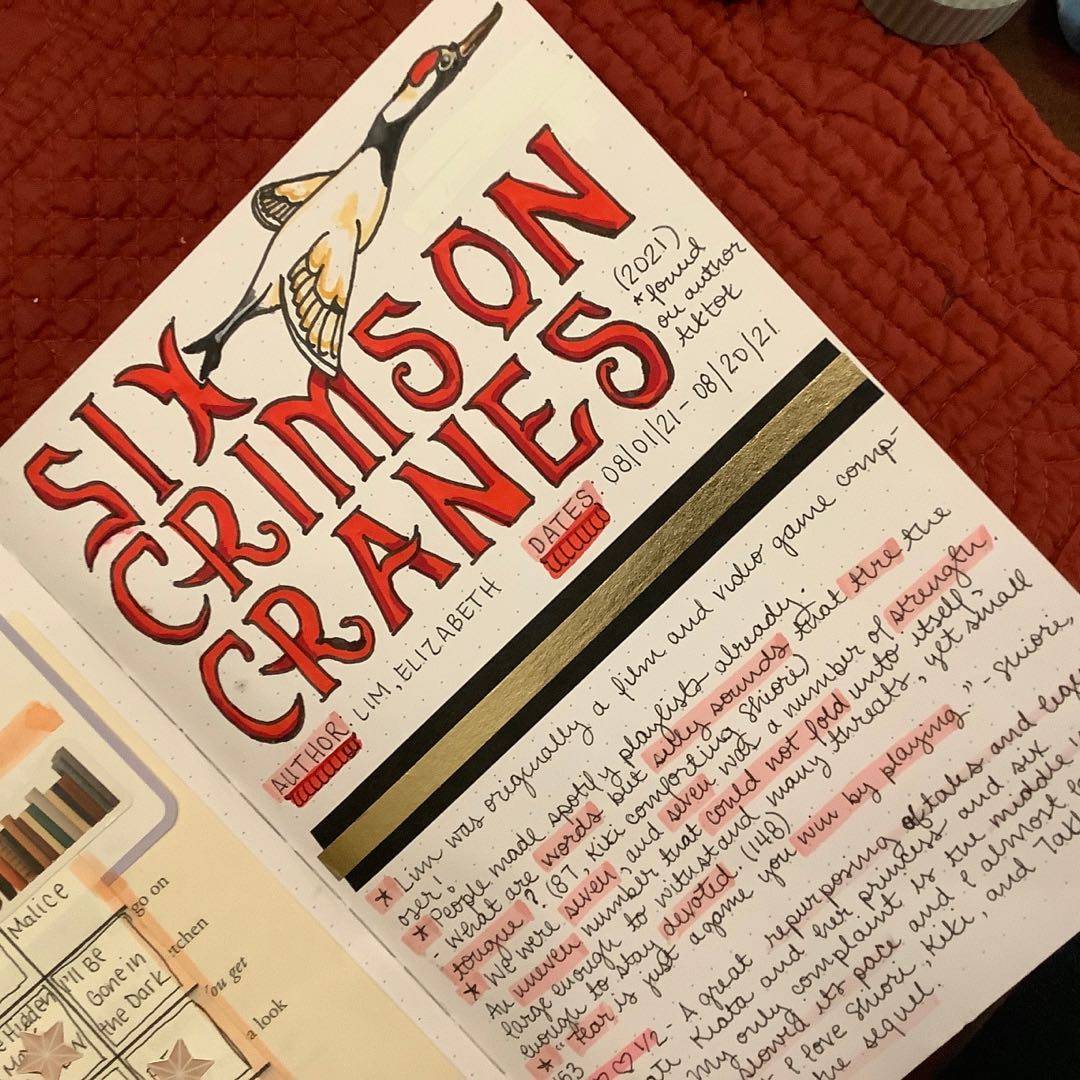 SIX
CRIMSON
CRANES
(2021)
*found
on author
tiktok
AUTHOR: LIM, ELIZABETH
DATES: 08/01/21 - 08/20/21
* Lim was originally a film and video game comp-
oser!
* People made spotify playlists already.
- What are words but silly sounds that tire the
tongue? (87, Kiki comforting Shiori)
* We were seven, and seven was a number of strength.
An uneven number that could not fold unto itself;
large enough to withstand many threats, yet small
enough to stay devoted. (148)
* "Fear is just a game you win by playing." - Shiori,
153
♡ ♡ 1/2 - A great repurposing of tales and
Kiata and her princess and six
my only complaint is the middle
slowed its pace and I almost
- I love Shiori, Kiki, and
the sequel.
Malice
I'll BE
Gone in
the Dark
Hidden
go on
tchen
ou get
a look